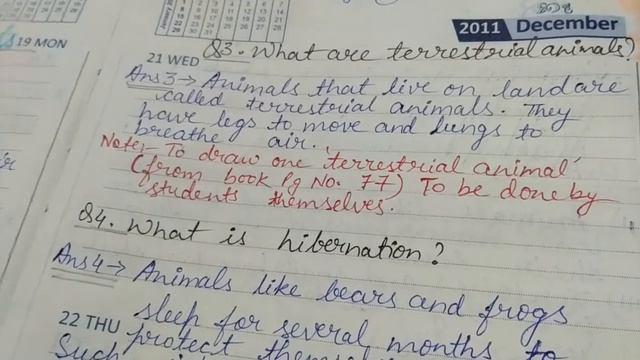 2011 December
19 MON
21 WED
Q3. What are terrestrial animals?
Ans3→ Animals that live on land are
called terrestrial animals. They
have legs to move and lungs to
breathe air.
Note:- To draw one 'terrestrial animal'
(from book Pg No. 77) To be done by
students themselves.
Q4. What is hibernation?
Ans4→ Animals like bears and frogs
22 THU
sleep for several months to
Such protect